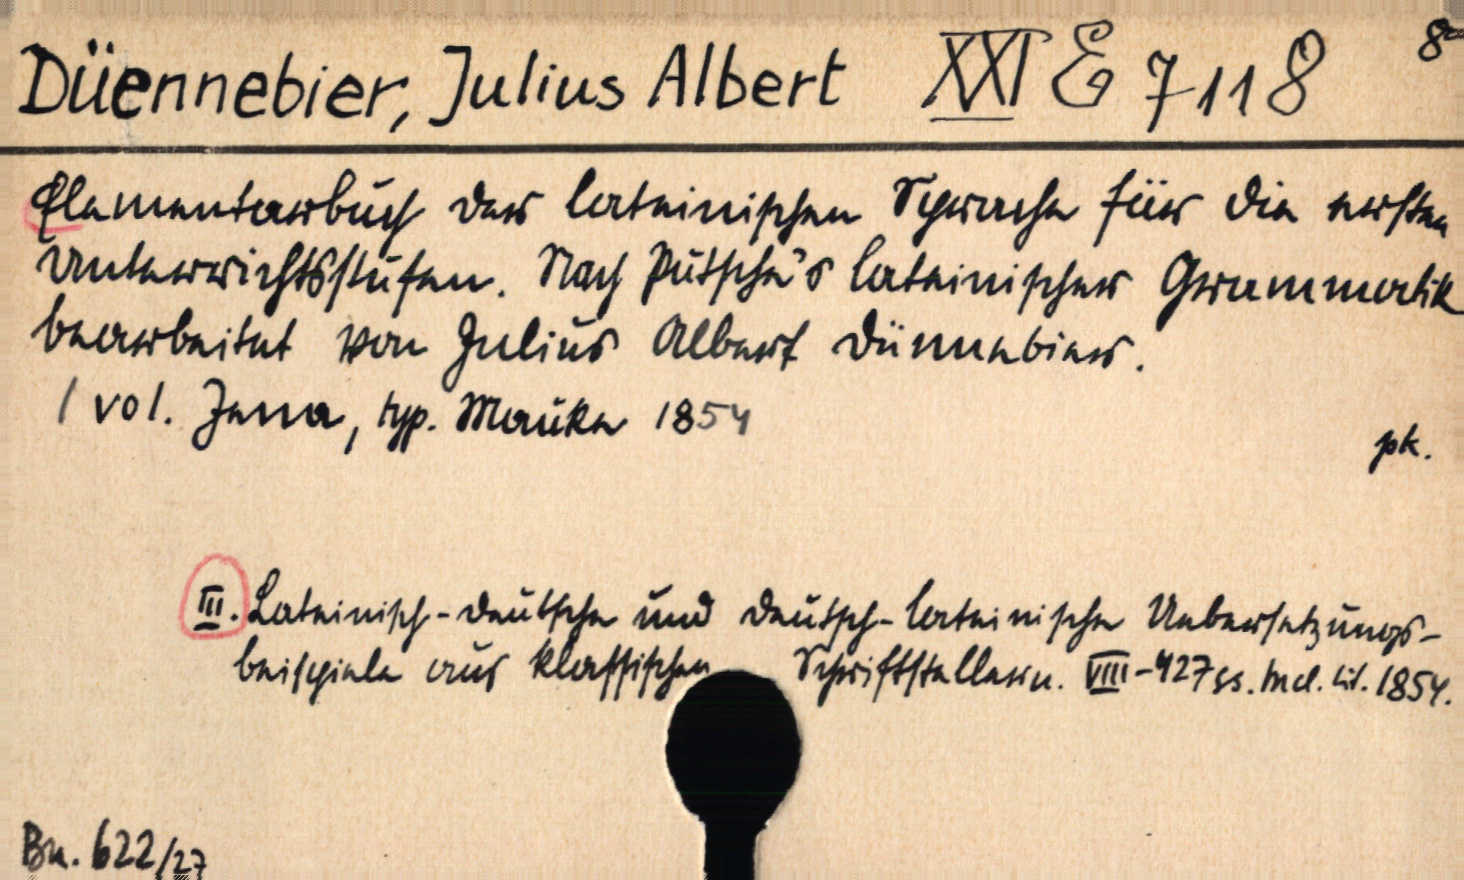 Düennebier, Julius Albert XXI E 7118 8°
Elementarbuch der lateinischen Sprache für die ersten
Unterrichtsstufen. Nach Putsche's lateinischer Grammatik
bearbeitet von Julius Albert Dünnebier.
1 vol. Jena, typ. Mauke 1854
pk.
III. Lateinisch-deutsche und deutsch-lateinische Uebersetzungs-
beispiele aus klassischen Schriftstellern. VIII-427 ss. Incl. tit. 1854.
Bn. 622/27